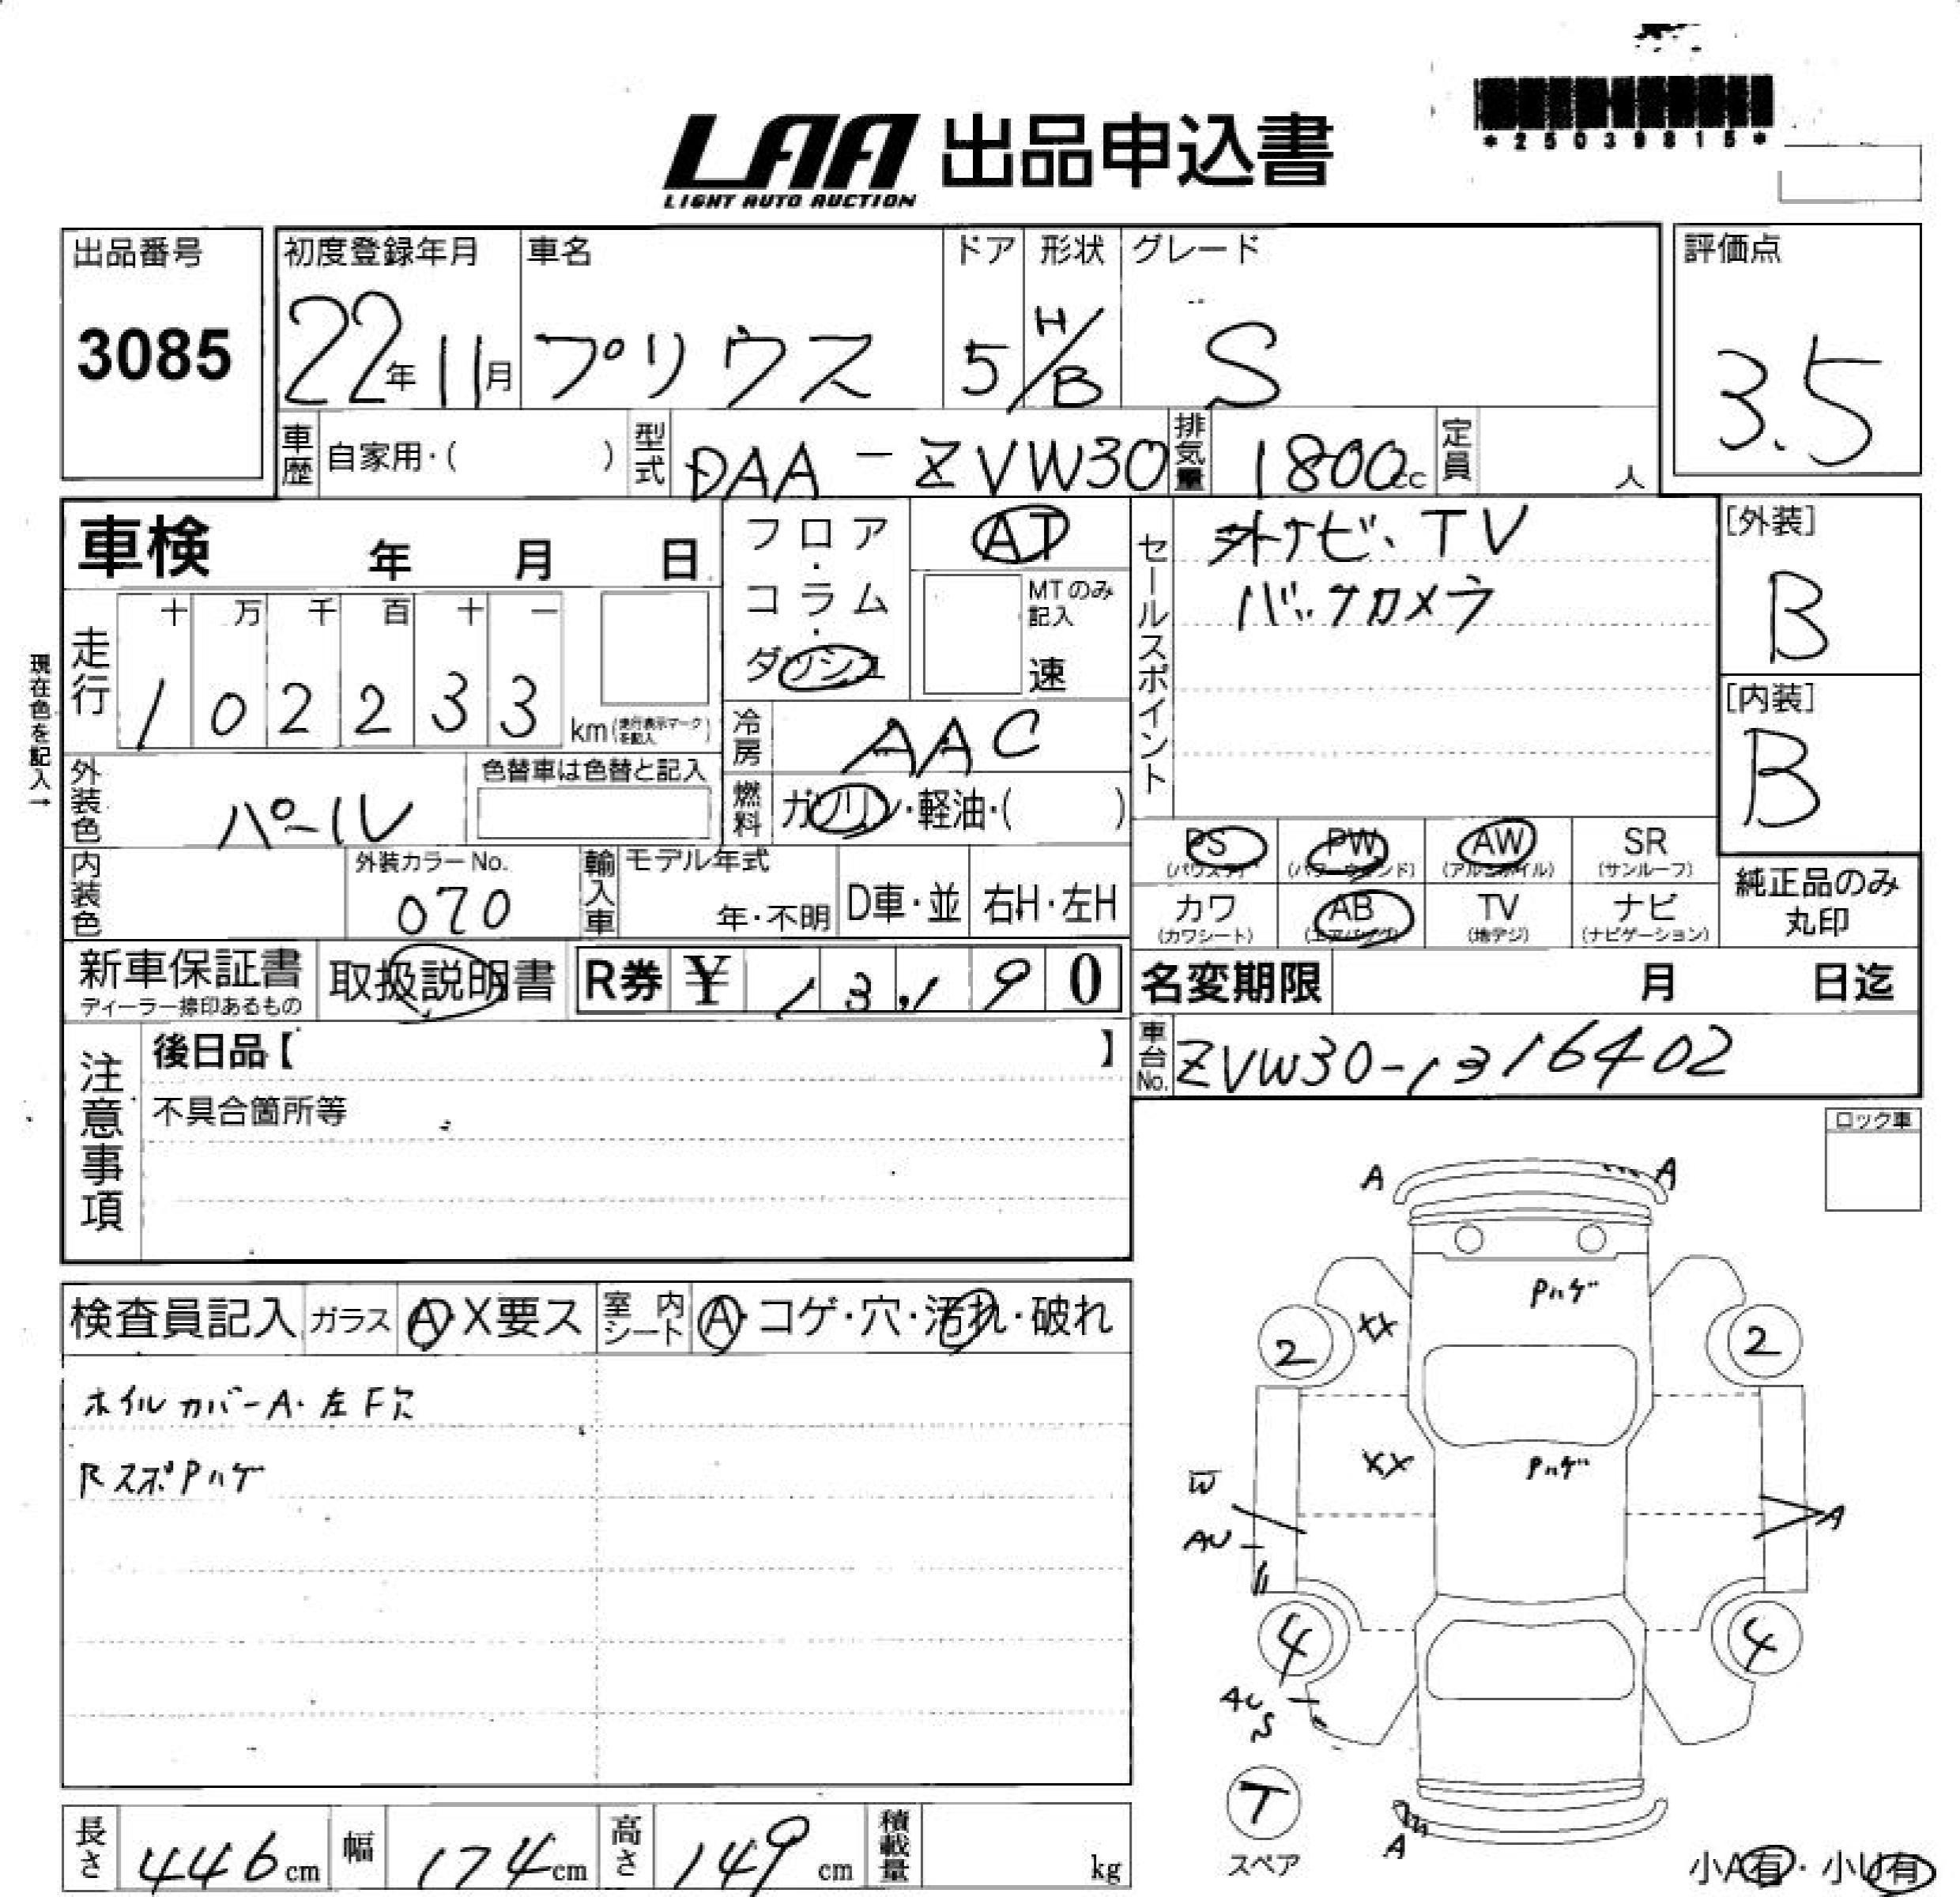 LAA 出品申込書
LIGHT AUTO AUCTION
*25039815*
出品番号
3085
初度登録年月 車名 ドア 形状 グレード
22年11月 プリウス 5 H/B S
評価点
3.5
車歴 自家用・( ) 型式 DAA-ZVW30 排気量 1800cc 定員 人
車検 年 月 日
フロア・コラム・ダッシュ
AT
MTのみ記入
速
セールスポイント
外ナビ、TV
バックカメラ
[外装]
B
[内装]
B
現在色を記入→
走行
十 万 千 百 十 一
1 0 2 2 3 3 km(走行表示マークを記入)
冷房 AAC
外装色 パール
色替車は色替と記入
燃料 ガソリン・軽油・( )
PS PW AW SR
(パワステ) (パワーウインド) (アルミホイル) (サンルーフ)
カワ AB TV ナビ
(カワシート) (エアバッグ) (地デジ) (ナビゲーション)
純正品のみ
丸印
内装色
外装カラーNo.
070
輸入車 モデル年式
年・不明 D車・並 右H・左H
新車保証書
ディーラー捺印あるもの
取扱説明書
R券 ¥ 13,190
名変期限 月 日迄
車台No. ZVW30-1316402
注意事項
後日品【 】
不具合箇所等
ロック車
検査員記入 ガラス A・X要ス 室内シート A・コゲ・穴・汚れ・破れ
ホイルカバーA・左F欠
RスポPハゲ
A A
Pハゲ
XX
2 2
XX Pハゲ
W
AU A
4 4
AU
S
T
スペア
A
小A有・小U有
長さ 446cm 幅 174cm 高さ 149cm 積載量 kg